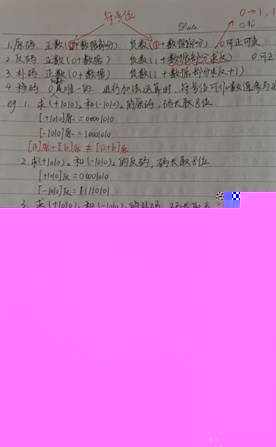 符号位
0→1, 1
Date.
1.原码 正数(0+数据部分) 负数(1+数据部分) 0可正可负
2.反码 正数(0+数据) 负数(1+数据部分求反) 0可正
3.补码 正数(0+数据) 负数(1+数据部分求反+1)
4.补码 0是唯一的 进行加法运算时,符号位可
eg 1. 求(+1010)₂和(-1010)₂的原码,码长取8位
[+1010]原=00001010
[-1010]原=10001010
[a]原+[b]原≠[a+b]原
2.求(+1010)₂和(-1010)₂的反码,码长取8位
[+1010]反=00001010
[-1010]反=11110101
3. 求(+1010)₂和(-1010)₂的